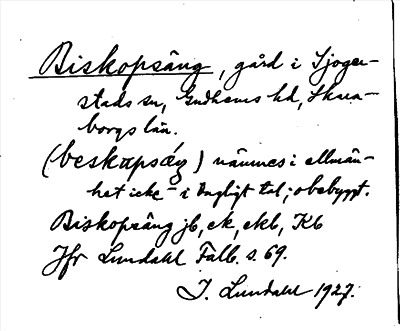 Biskopsäng, gård i Sjoger-
stads sn, Gudhems hd, Skara-
borgs län.
(beskapsäŋ) nämnes i allmän-
het icke i dagligt tal; obebyggt.
Biskopsäng jb, ek, ekb, Kb
Jfr Lundahl Falb. s. 69.
I. Lundahl 1927.